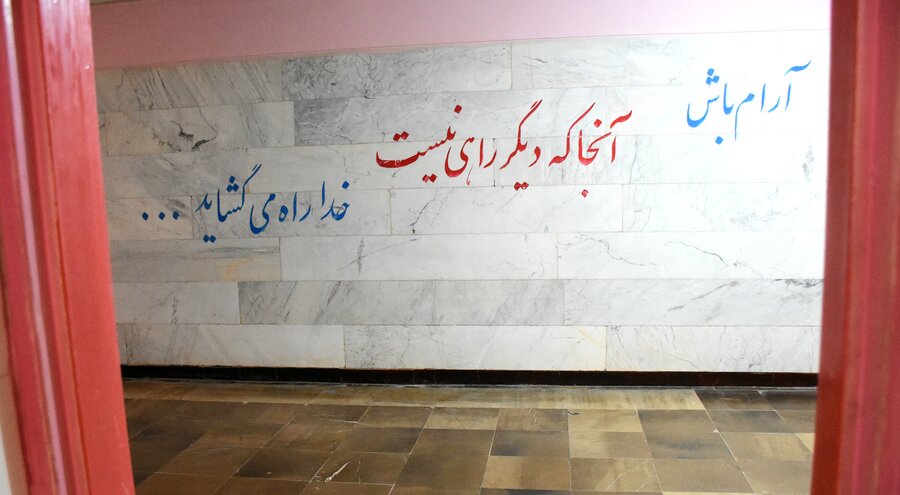 آرام باش
آنجا که دیگر راهی نیست
خدا راه می گشاید ...